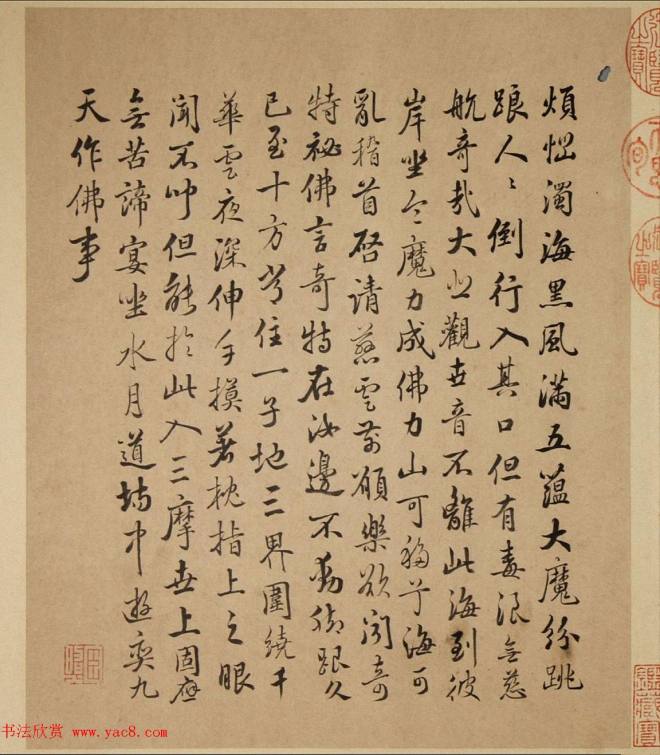 煩惱濁海黑風滿五蘊大魔紛跳
踉人〻倒行入其口但有毒浪無慈
航奇哉大悲觀世音不離此海到彼
岸坐令魔力成佛力山可移兮海可
亂稽首啓請慈雲前願樂欲聞奇
特祕佛言奇特在汝邊不動腳跟久
已至十方皆住一子地三界圍繞千
華雲夜深伸手摸著枕指上之眼
聞不聞但能於此入三摩世上固應
無苦諦宴坐水月道場中遊奕九
天作佛事
书法欣赏 www.yac8.com